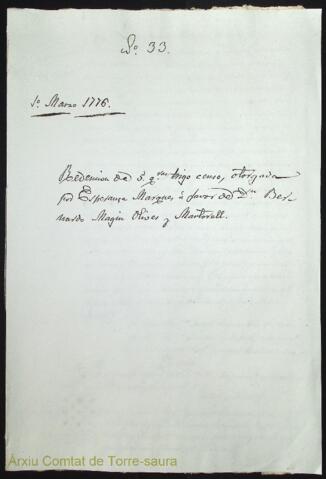 Nº 33.
1º Marzo 1776.
Redencion de 5. qras trigo censo, otorgada
por Esperanza Marques á favor de Dn Ber-
nardo Magin Olives y Martorell.
Arxiu Comtat de Torre-saura